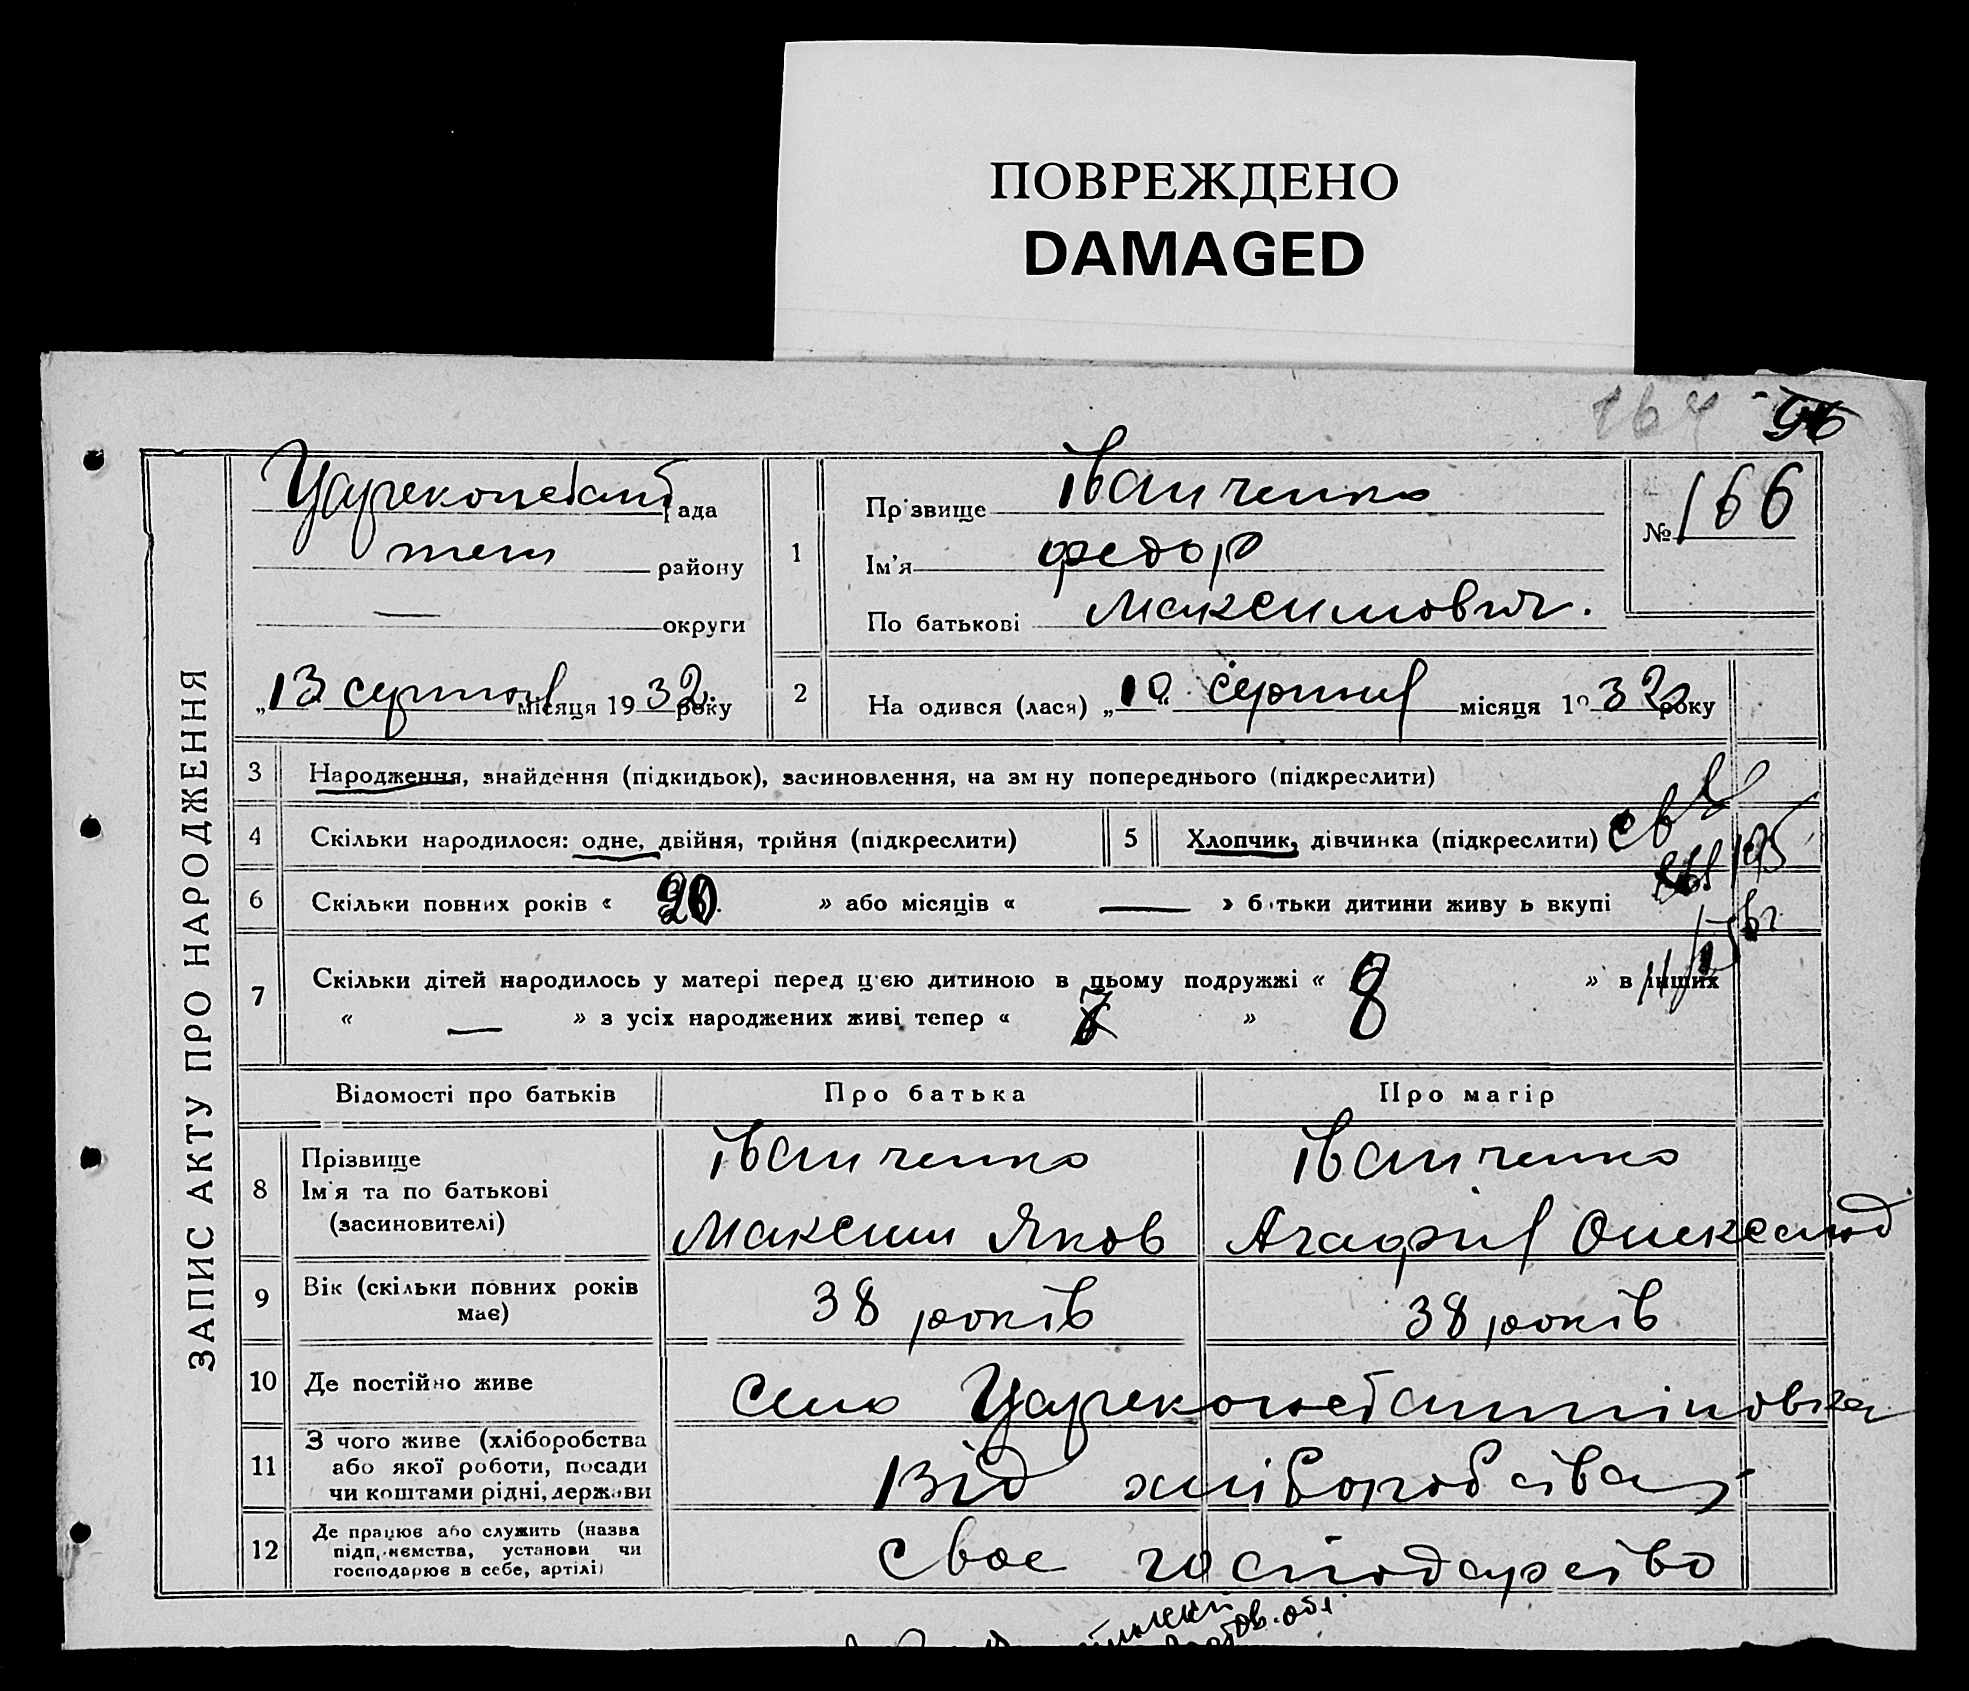 ПОВРЕЖДЕНО
DAMAGED
164 96
ЗАПИС АКТУ ПРО НАРОДЖЕННЯ
Цареконстант рада
района
району
— округи
„13 серпня місяця 1932 року
1
Прізвище Іванченко
Ім'я Федор
По батькові Максимович.
№ 166
2
На одився (лася) „10" серпня місяця 1932 року
3 Народження, знайдення (підкидьок), засиновлення, на зм ну попереднього (підкреслити)
4 Скільки народилося: одне, двійня, трійня (підкреслити)
5 Хлопчик, дівчинка (підкреслити)
6 Скільки повних років « 20. » або місяців « — » б тьки дитини живу ь вкупі
7 Скільки дітей народилось у матері перед цією дитиною в цьому подружжі « 8 » в інших
« — » з усіх народжених живі тепер « 7 »
Відомості про батьків
Про батька
Про матір
8 Прізвище
Ім'я та по батькові
(засиновителі)
Іванченко
Максим Яков
Іванченко
Агафія Олександ
9 Вік (скільки повних років
має)
38 років
38 років
10 Де постійно живе
село Цареконстантіновка
11 З чого живе (хліборобства
або якої роботи, посади
чи коштами рідні, держави
Від хліборобства
12 Де працює або служить (назва
підп, иємства, установи чи
господарює в себе, артілі)
своє господарство